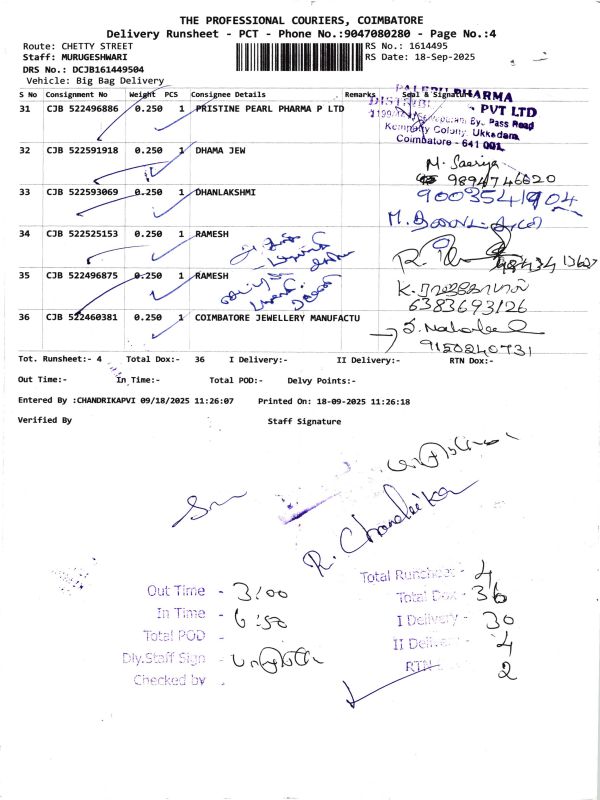 THE PROFESSIONAL COURIERS, COIMBATORE
Delivery Runsheet - PCT - Phone No.:9047080280 - Page No.:4
Route: CHETTY STREET
RS No.: 1614495
Staff: MURUGESHWARI
RS Date: 18-Sep-2025
DRS No.: DCJB161449504
Vehicle: Big Bag Delivery
S No Consignment No Weight PCS Consignee Details Remarks Seal & Signature
PHARMA
PVT LTD
By. Pass Road
Colony, Ukkadam,
Coimbatore - 641 001.
31 CJB 522496886 0.250 1 PRISTINE PEARL PHARMA P LTD
32 CJB 522591918 0.250 1 DHAMA JEW
9894746620
33 CJB 522593069 0.250 1 DHANLAKSHMI
9003541904
34 CJB 522525153 0.250 1 RAMESH
35 CJB 522496875 0.250 1 RAMESH
6383693126
36 CJB 522460381 0.250 1 COIMBATORE JEWELLERY MANUFACTU
9150240731
Tot. Runsheet:- 4 Total Dox:- 36 I Delivery:- II Delivery:- RTN Dox:-
Out Time:- In Time:- Total POD:- Delvy Points:-
Entered By :CHANDRIKAPVI 09/18/2025 11:26:07 Printed On: 18-09-2025 11:26:18
Verified By Staff Signature
R. Chandrika
Out Time - 3:00
In Time - 6:50
Total POD -
Dly.Staff Sign -
Checked by -
Total Runsheet - 4
Total Dox - 36
I Delivery - 30
II Delivery - 4
RTN 2